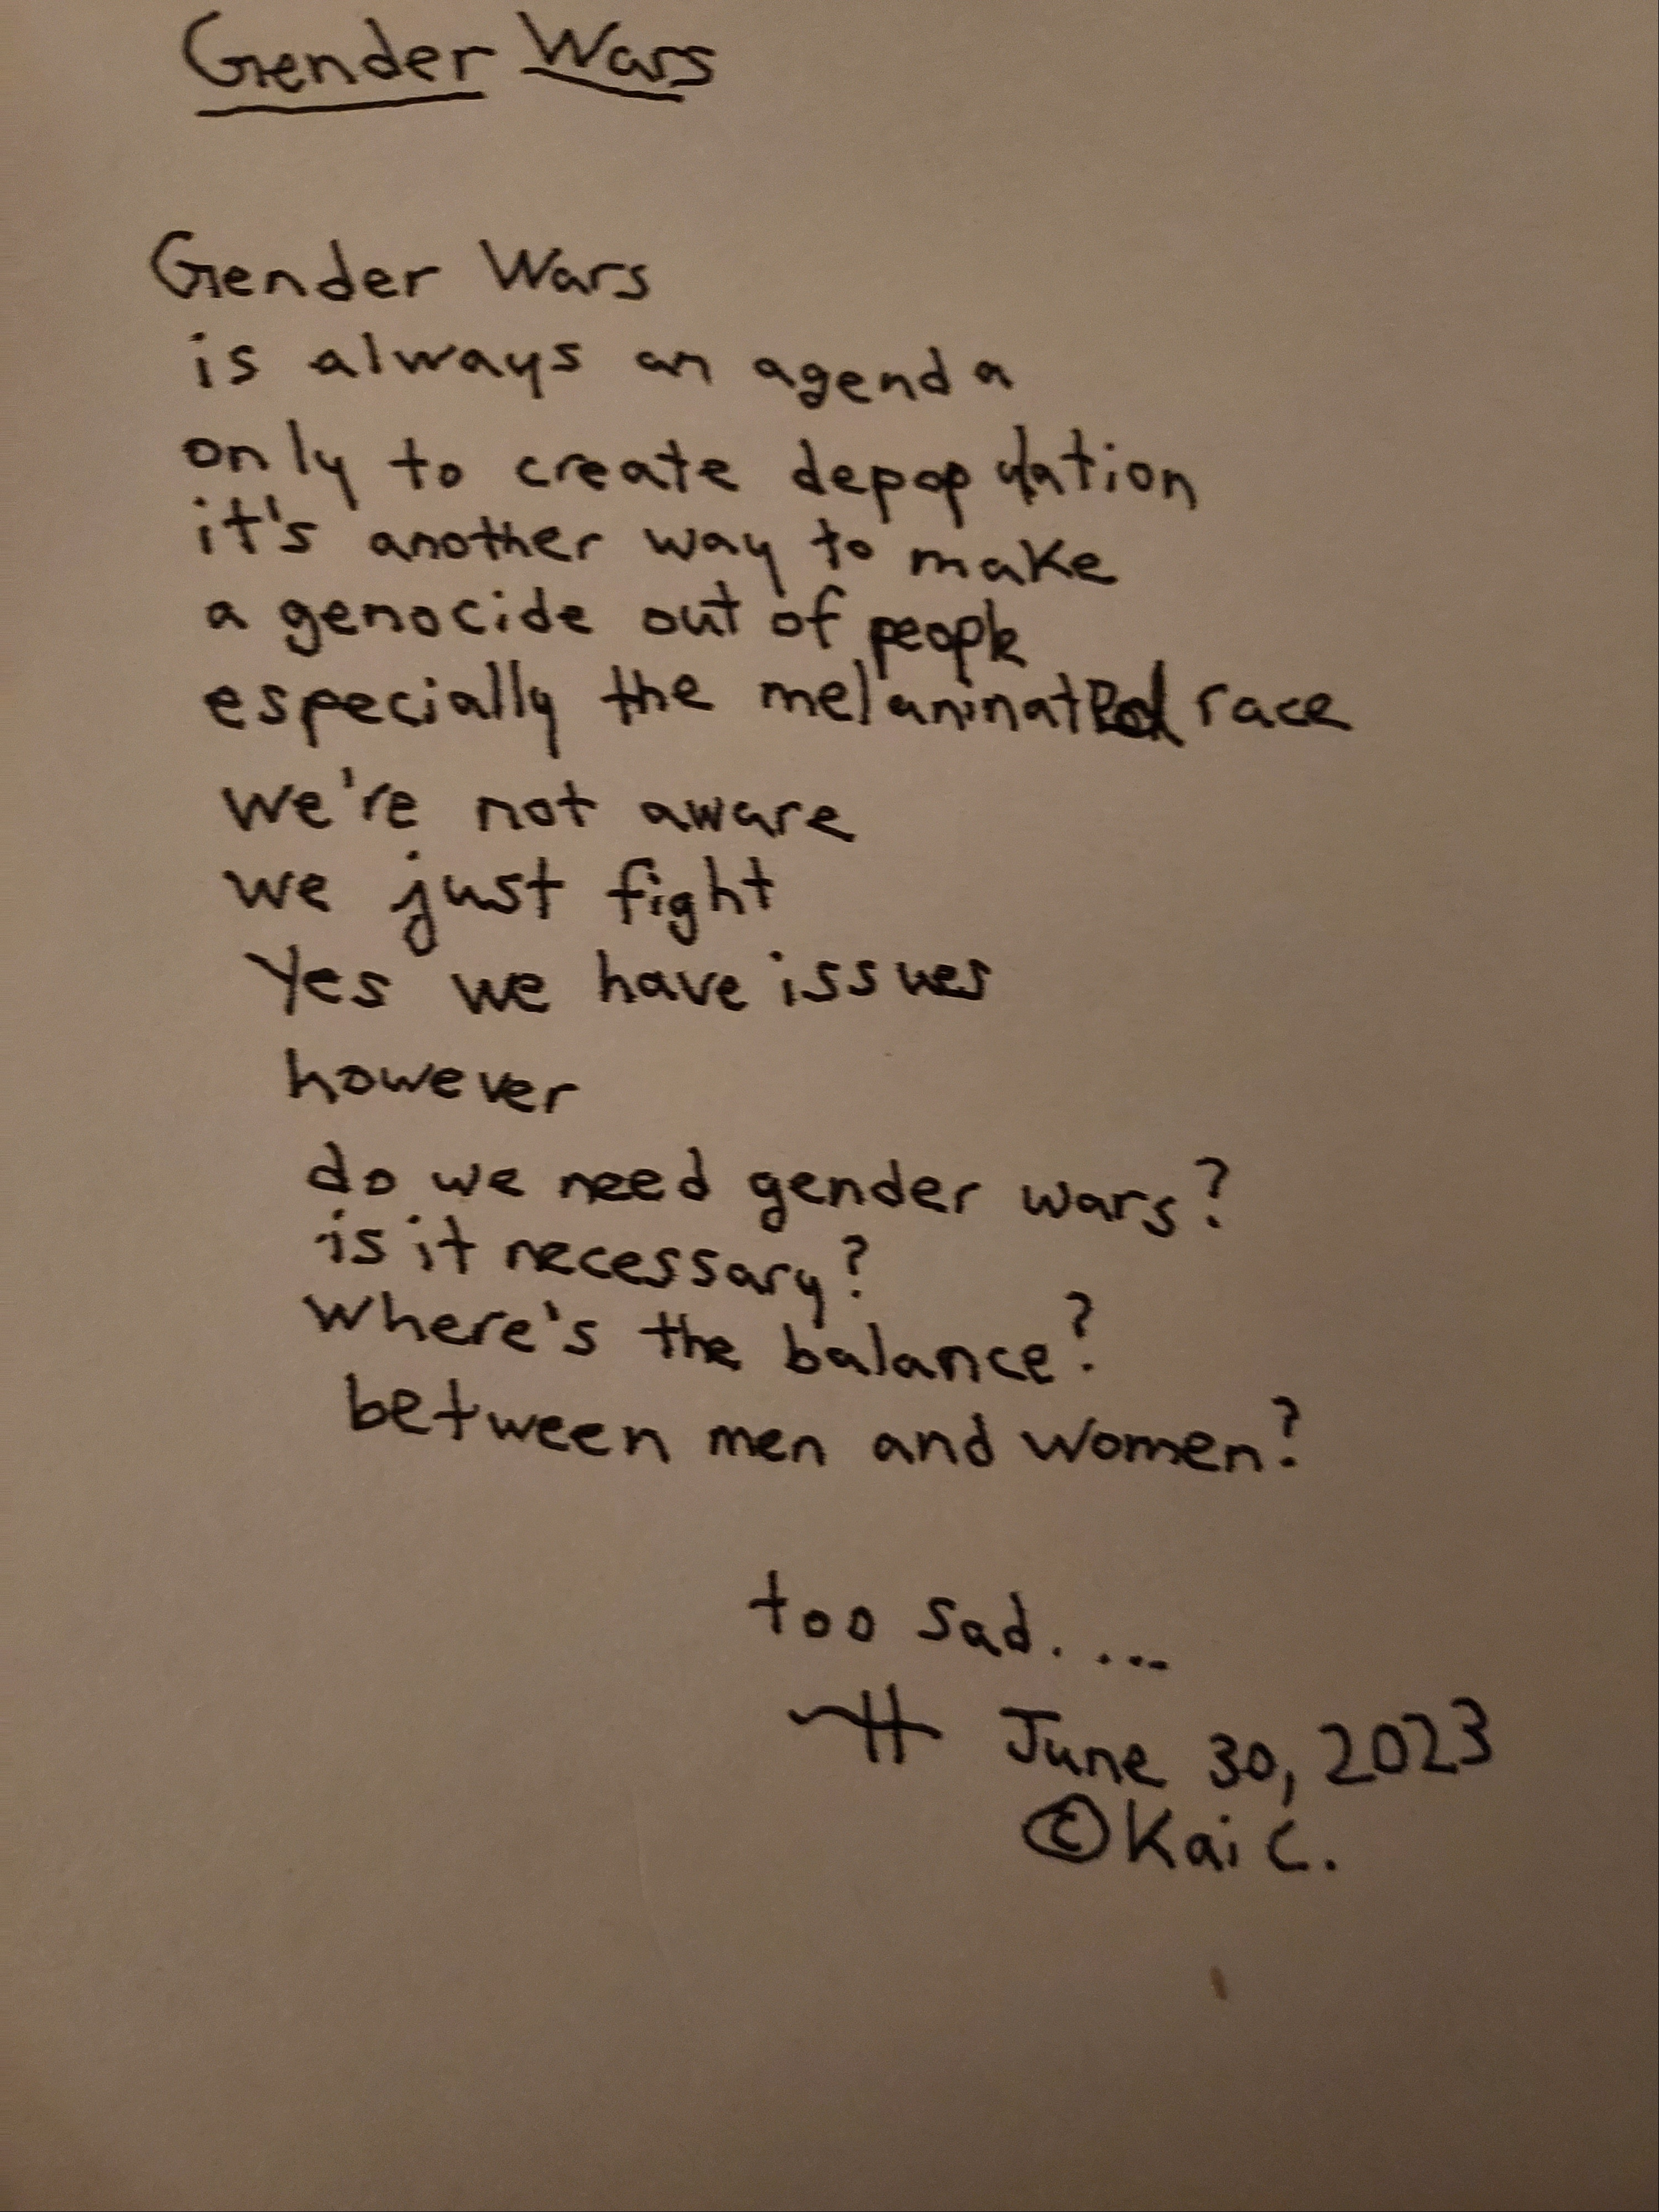 Gender Wars
Gender Wars
is always an agenda
only to create depopulation
it's another way to make
a genocide out of people
especially the melaninated race
we're not aware
we just fight
Yes we have issues
however
do we need gender wars?
is it necessary?
Where's the balance?
between men and women?
too sad....
June 30, 2023
©Kai C.